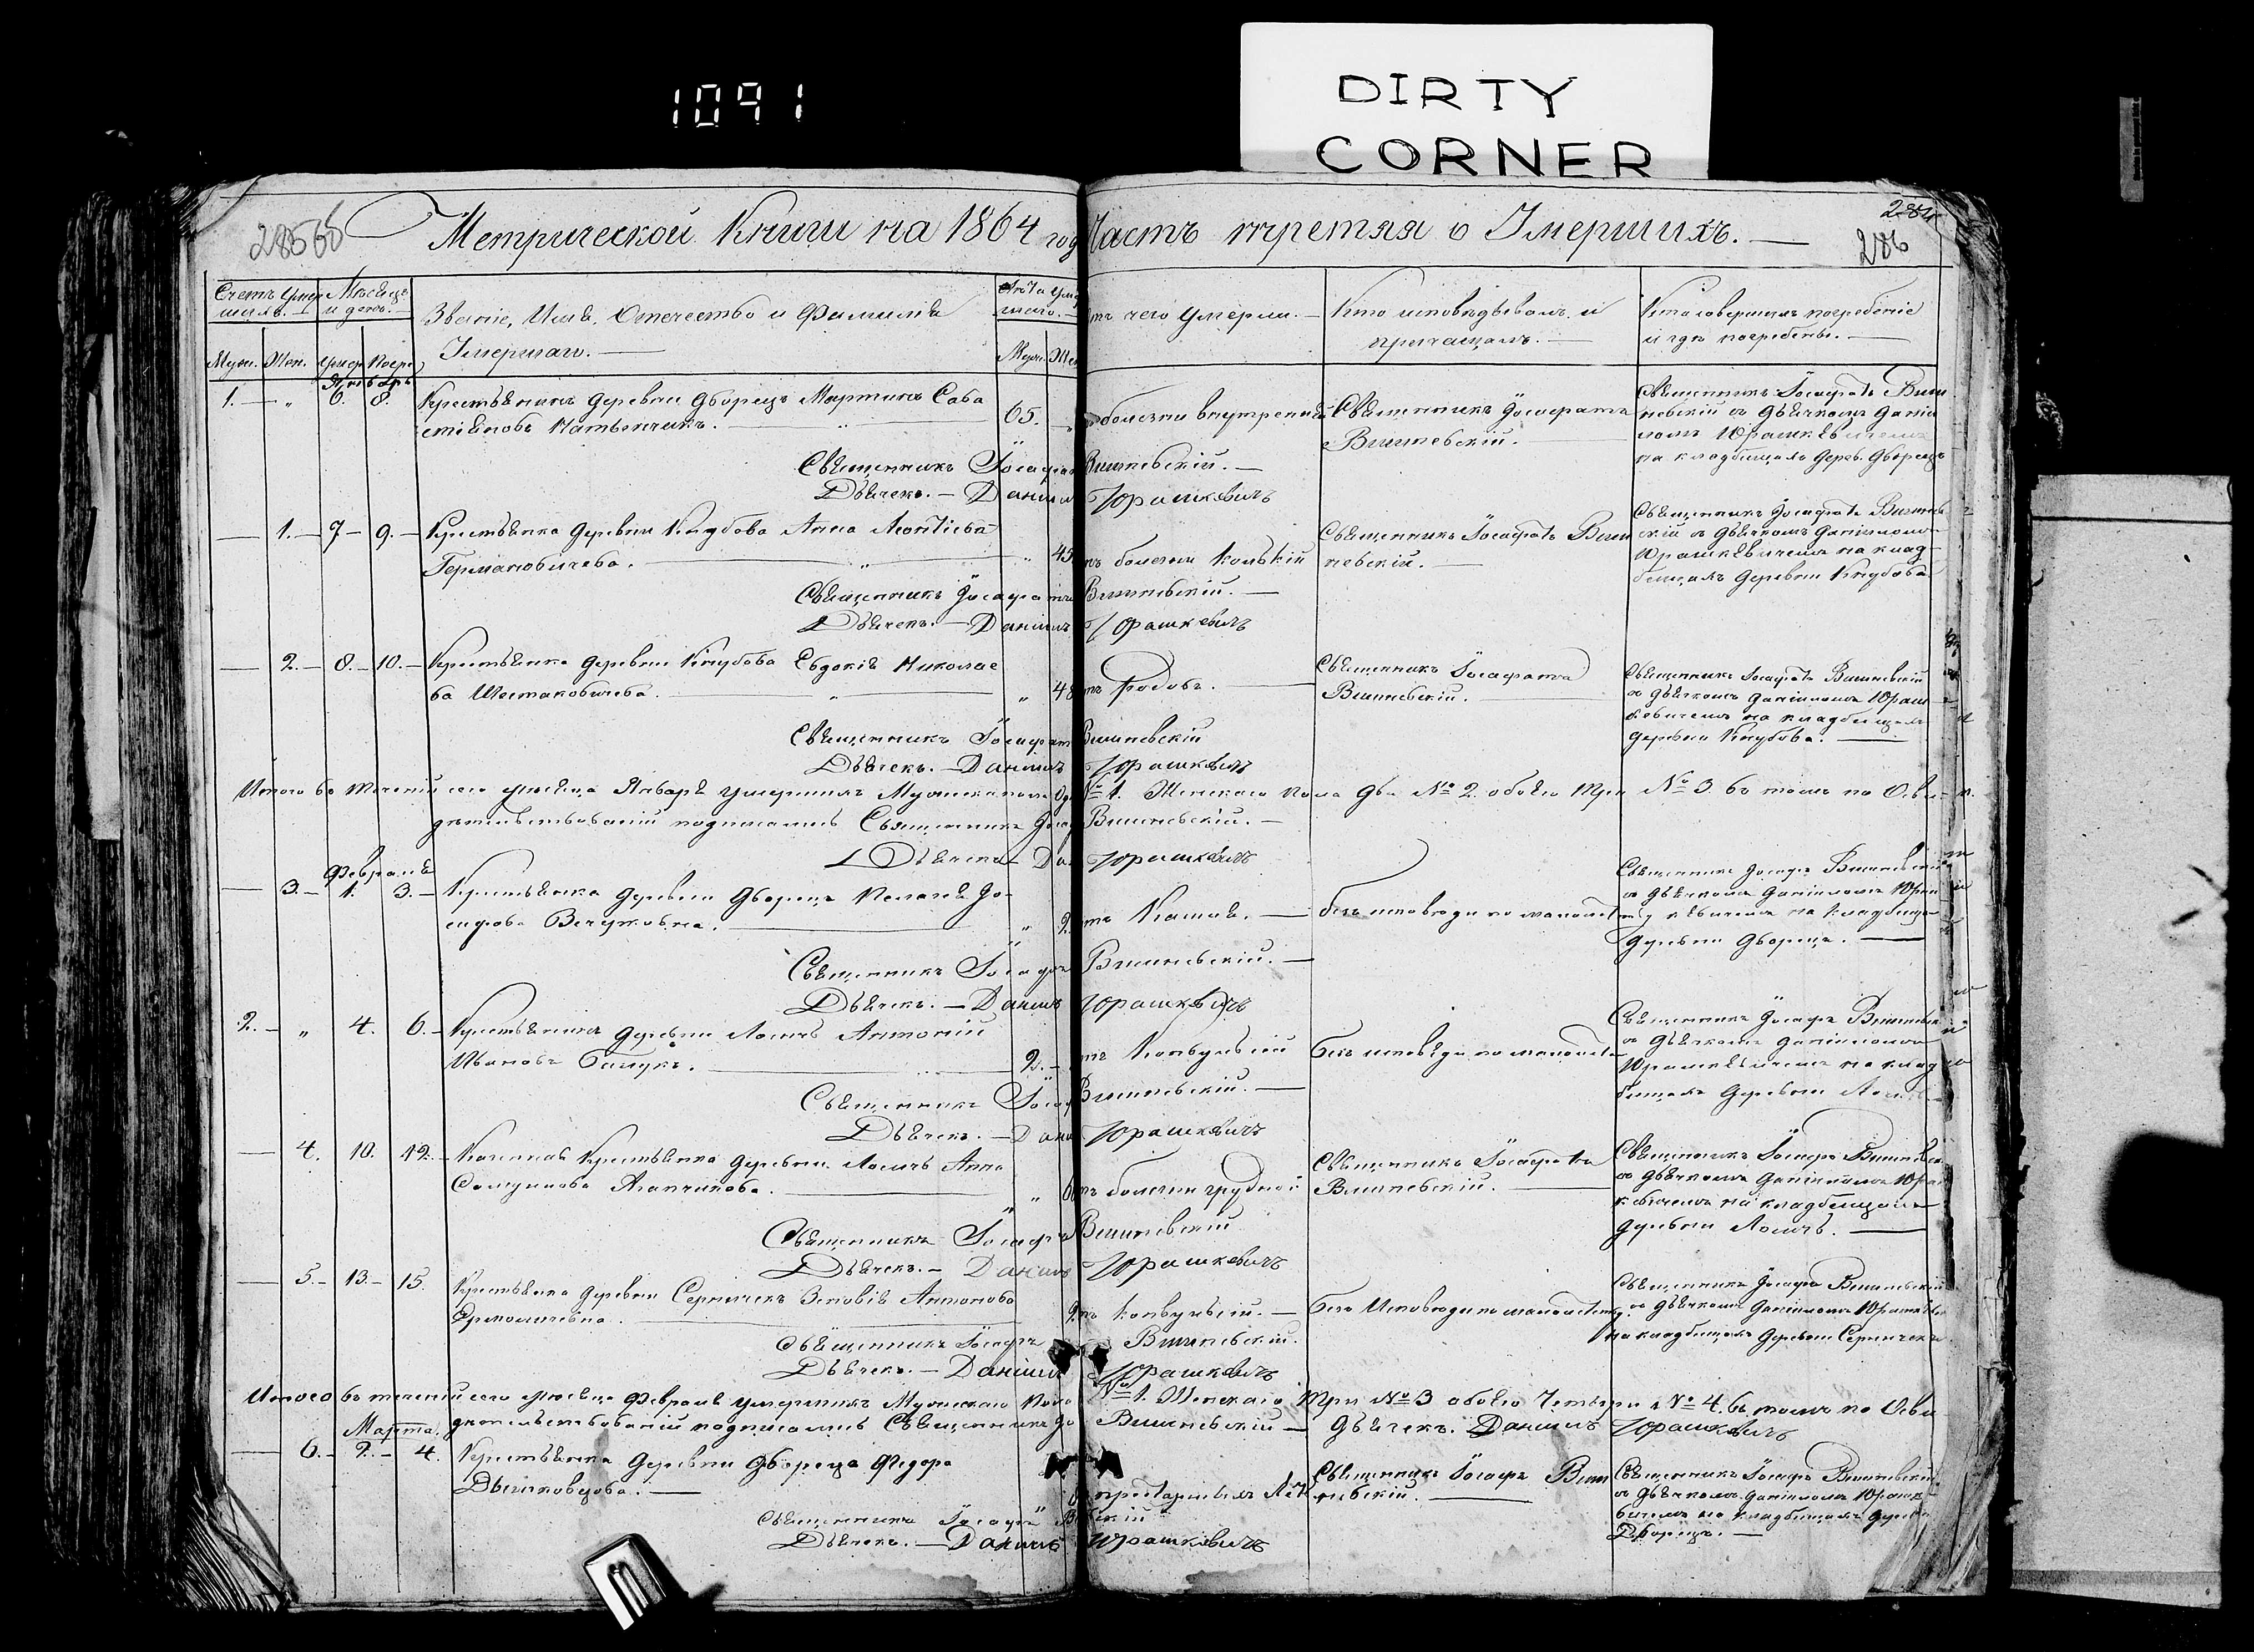 1091
DIRTY
CORNER
Метрической Книги на 1864 год
Часть третяя о Умершихъ. —
284
286
Счетъ умер
шихъ.
Мѣсяцъ
и день.
Званіе, Имя, Отечество и Фамилія
Умершаго. —
Лѣта умер
шаго.
Муж. Жен. Умер. Погре.
Муж. Жен
чего умерли. —
Кто исповѣдывалъ и
причащалъ. —
Кто совершалъ погребеніе
и гдѣ погребены. —
Январь
1. — „ 6. 8. Крестьянинъ деревни Дворецъ Мартинъ Сава
стіяновъ 65.
болезни внутренней
Священникъ Іосафатъ
Вишневскій.
Священникъ Іосафатъ Виш
невскій съ дьячкомъ Даніи
ломъ Юрашкевичемъ
на кладбищахъ дерев. Дворецъ
Священникъ Іосафатъ Вишневскій. —
Дьячекъ. — Даніилъ Юрашкевичъ
— 1. — 7 — 9. — Крестьянка деревни Кнубова Анна Леонтіева
Германовичева. — „ 45
болезни
Священникъ Іосафатъ Виш
невскій. —
Священникъ Іосафатъ Вишнев
скій съ дьячкомъ Даніиломъ
Юрашкевичемъ на клад
бищахъ деревни Кнубова
Священникъ Іосафатъ Вишневскій. —
Дьячекъ. — Даніилъ Юрашкевичъ
— 2. — 8. — 10. — Крестьянка деревни Кнубова Евдокія Николае
ва Шостаковичева. — „ 48
родовъ.
Священникъ Іосафатъ
Вишневскій.
Священникъ Іосафатъ Вишневскій
съ дьячкомъ Даніиломъ Юраш
кевичемъ на кладбищахъ
деревни Кнубова. —
Священникъ Іосафатъ Вишневскій
Дьячекъ. — Даніилъ Юрашкевичъ
Итого въ теченіи сего мѣсяца Января умершихъ Мужеска пола № 1. Женскаго пола два № 2. обоего три № 3. въ томъ по Осви
дѣтельствованіи подписались Священникъ Вишневскій. —
Дьячекъ — Юрашкевичъ
Февраля
— 3. — 1. 3. — Крестьянка деревни Дворецъ Пелагія Іо
сифова „ 2
Кашля. —
безъ исповѣди по малолет
Священникъ Іосафъ Вишневскій
съ дьячкомъ Даніиломъ Юраш
кевичемъ на кладбищахъ
деревни Дворецъ. —
Священникъ Іосафъ Вишневскій. —
Дьячекъ. — Даніилъ Юрашкевичъ
2. — „ 4. 6. — Крестьянинъ деревни Антоній
Ивановъ 2. —
Конвульсій
безъ исповѣди по малолет
Священникъ Іосафъ Вишневск
съ дьячкомъ Даніиломъ
Юрашкевичемъ на клад
бищахъ деревни
Священникъ Вишневскій. —
Дьячекъ. — Юрашкевичъ
— 4. 10. 12. — Крестьянка деревни Анна
„ 6
болезни грудной
Священникъ Іосафатъ
Вишневскій. —
Священникъ Іосафъ Вишневск
съ дьячкомъ Даніиломъ Юраш
кевичемъ на кладбищахъ
деревни
Священникъ Іосафъ Вишневскій
Дьячекъ. — Даніилъ Юрашкевичъ
— 5. — 13. — 15. Крестьянка деревни Серничекъ Зеновія Антонова
Ермоличевна. — 2
конвульсій. —
безъ Исповѣди по малолет
Священникъ Іосафъ Вишневскій
съ дьячкомъ Даніиломъ
на кладбищахъ деревни Серничекъ
Священникъ Іосафъ Вишневскій.
Дьячекъ. — Даніилъ Юрашкевичъ
Итого въ теченіи сего мѣсяца Февраля умершихъ Мужескаго № 1. Женскаго три № 3 обоего четыри № 4. въ томъ по Осви
дѣтельствованіи подписались Священникъ Вишневскій — Дьячекъ. Даніилъ Юрашкевичъ
Марта.
— 6. — 2. — 4. Крестьянка деревни Двореца Федора
престарелыхъ
Священникъ Іосафъ Виш
невскій. —
Священникъ Іосафъ Вишневскій
съ дьячкомъ Даніиломъ Юрашке
вичемъ на кладбищахъ деревни
Дворецъ. —
Священникъ Іосафъ
Дьячекъ. — Даніилъ Юрашкевичъ